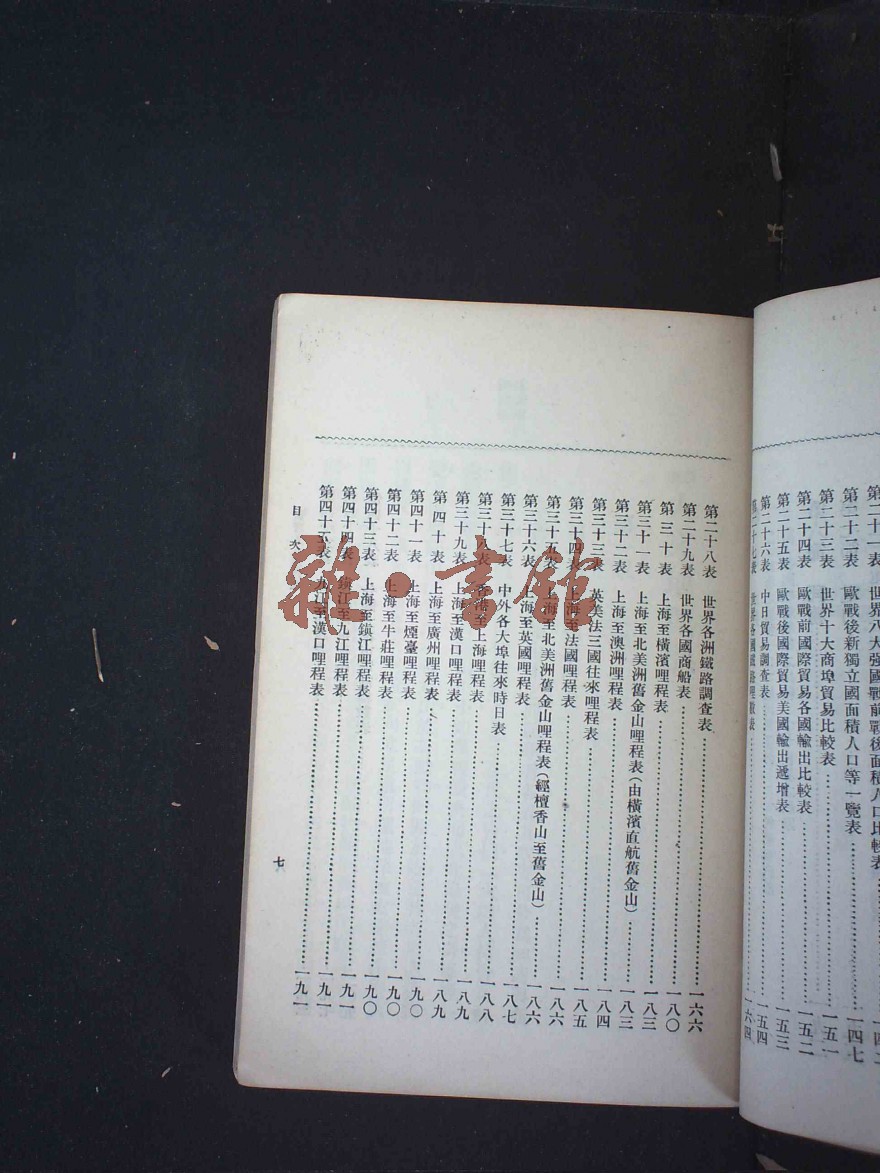 第二十一表 世界八大強國戰前戰後面積人口比較表
第二十二表 歐戰後新獨立國面積人口等一覽表……一四七
第二十三表 世界十大商埠貿易比較表……一五一
第二十四表 歐戰前國際貿易各國輸出比較表……一五二
第二十五表 歐戰後國際貿易美國輸出遞增表……一五三
第二十六表 中日貿易調查表……一五四
第二十七表 世界各國鐵路哩數表……一六四
第二十八表 世界各洲鐵路調查表……一六六
第二十九表 世界各國商船表……一八〇
第三十表 上海至橫濱哩程表……一八三
第三十一表 上海至北美洲舊金山哩程表(由橫濱直航舊金山)……一八三
第三十二表 上海至澳洲哩程表……一八四
第三十三表 英美法三國往來哩程表……一八五
第三十四表 上海至法國哩程表……一八六
第三十五表 上海至北美洲舊金山哩程表(經檀香山至舊金山)……一八六
第三十六表 上海至英國哩程表……一八七
第三十七表 中外各大埠往來時日表……一八八
第三十八表 香港至上海哩程表……一八九
第三十九表 上海至漢口哩程表……一八九
第四十表 上海至廣州哩程表……一九〇
第四十一表 上海至煙臺哩程表……一九〇
第四十二表 上海至牛莊哩程表……一九〇
第四十三表 上海至鎮江哩程表……一九一
第四十四表 鎮江至九江哩程表……一九一
第四十五表 九江至漢口哩程表……一九一
目次
七
雜·書館